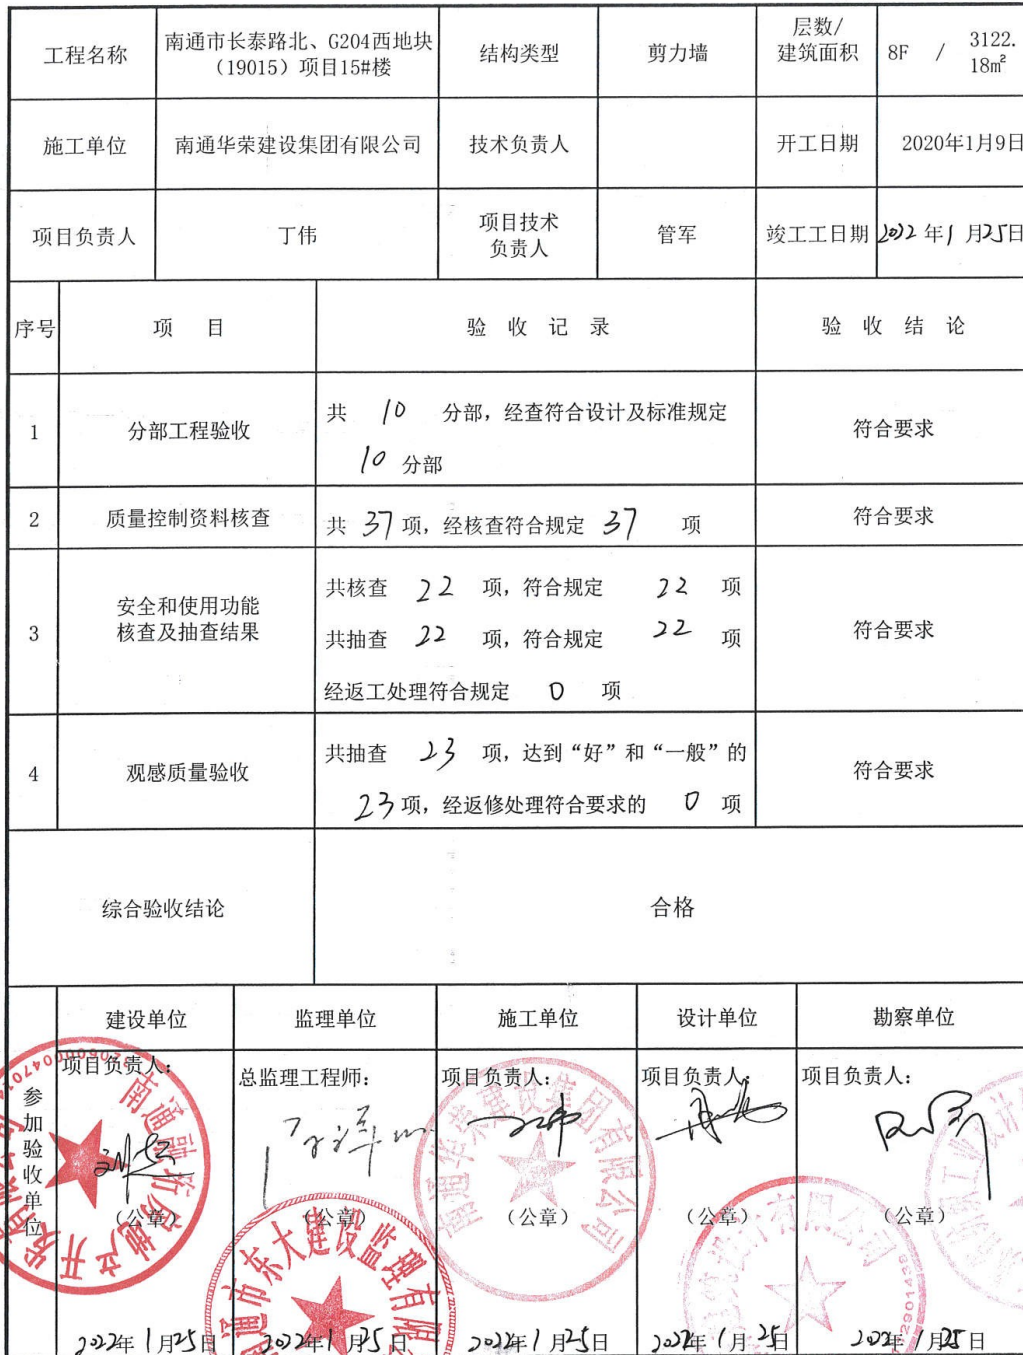 工程名称
南通市长泰路北、G204西地块
（19015）项目15#楼
结构类型
剪力墙
层数/
建筑面积
8F / 3122.
18㎡
施工单位
南通华荣建设集团有限公司
技术负责人
开工日期
2020年1月9日
项目负责人
丁伟
项目技术
负责人
管军
竣工工日期
2022年1月25日
序号
项 目
验 收 记 录
验 收 结 论
1
分部工程验收
共 10 分部，经查符合设计及标准规定
10 分部
符合要求
2
质量控制资料核查
共 37 项，经核查符合规定 37 项
符合要求
3
安全和使用功能
核查及抽查结果
共核查 22 项，符合规定 22 项
共抽查 22 项，符合规定 22 项
经返工处理符合规定 0 项
符合要求
4
观感质量验收
共抽查 23 项，达到“好”和“一般”的
23 项，经返修处理符合要求的 0 项
符合要求
综合验收结论
合格
参加验收单位
建设单位
监理单位
施工单位
设计单位
勘察单位
项目负责人：
总监理工程师：
项目负责人：
项目负责人：
项目负责人：
（公章）
（公章）
（公章）
（公章）
（公章）
南通华荣建设集团有限公司
通市东大建设监理有限
2022年1月25日
2022年1月25日
2022年1月25日
2022年1月25日
2022年1月25日